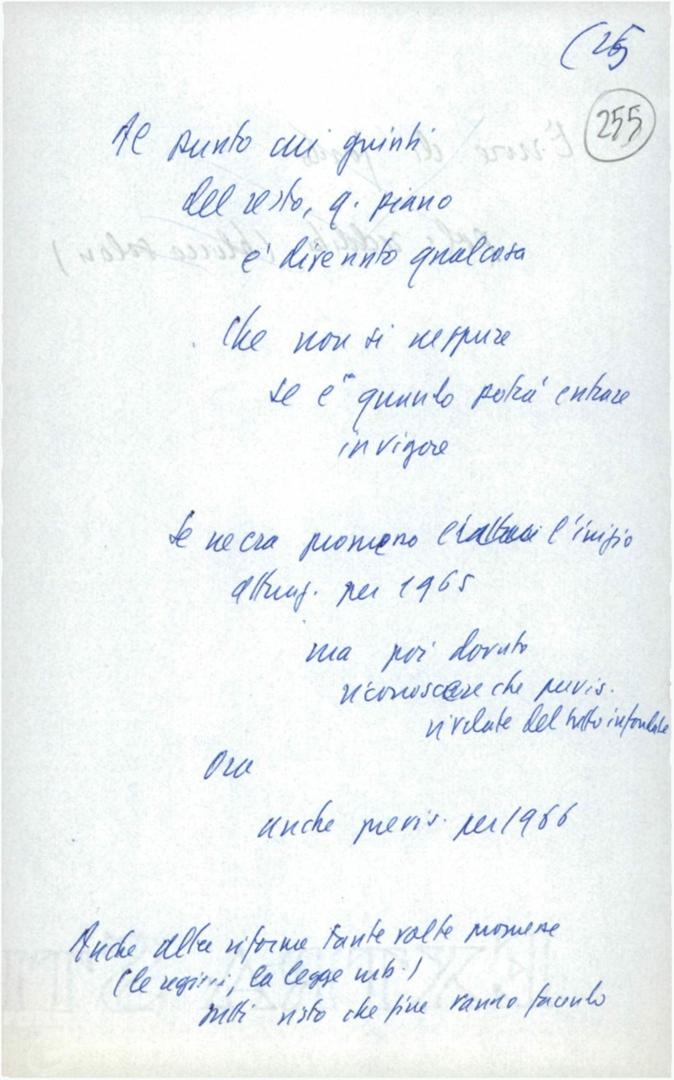 (25
255
Al punto cui giunti
del resto, q. piano
è divenuto qualcosa
che non si neppure
se e quando potrà entrare
in vigore
Se ne era promesso l'inizio
per 1965
ma poi dovuto
riconoscere che previs.
rivelate del tutto infondate
Ora
anche previs. per 1966
Anche altre riforme tante volte promesse
(le regioni, la legge urb.)
tutti visto che fine vanno facendo